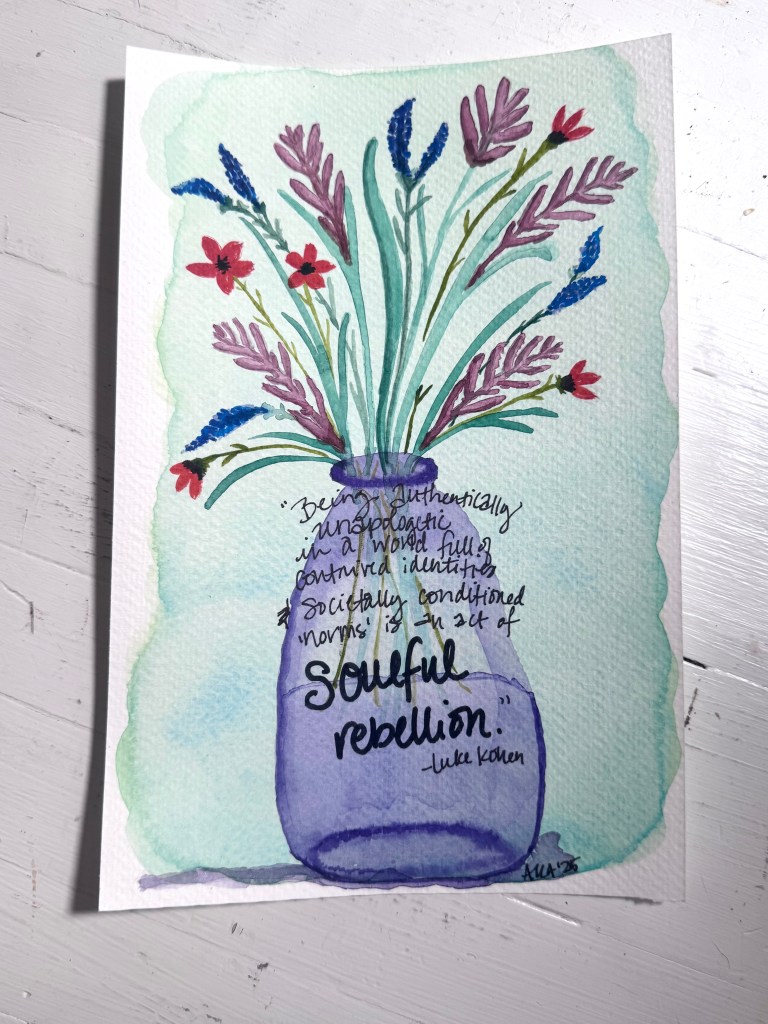 "Being Authentically
unapologetic
in a world full of
contrived identities
& societally conditioned
'norms' is an act of
soulful
rebellion."
-Luke Kohen
AKA '25